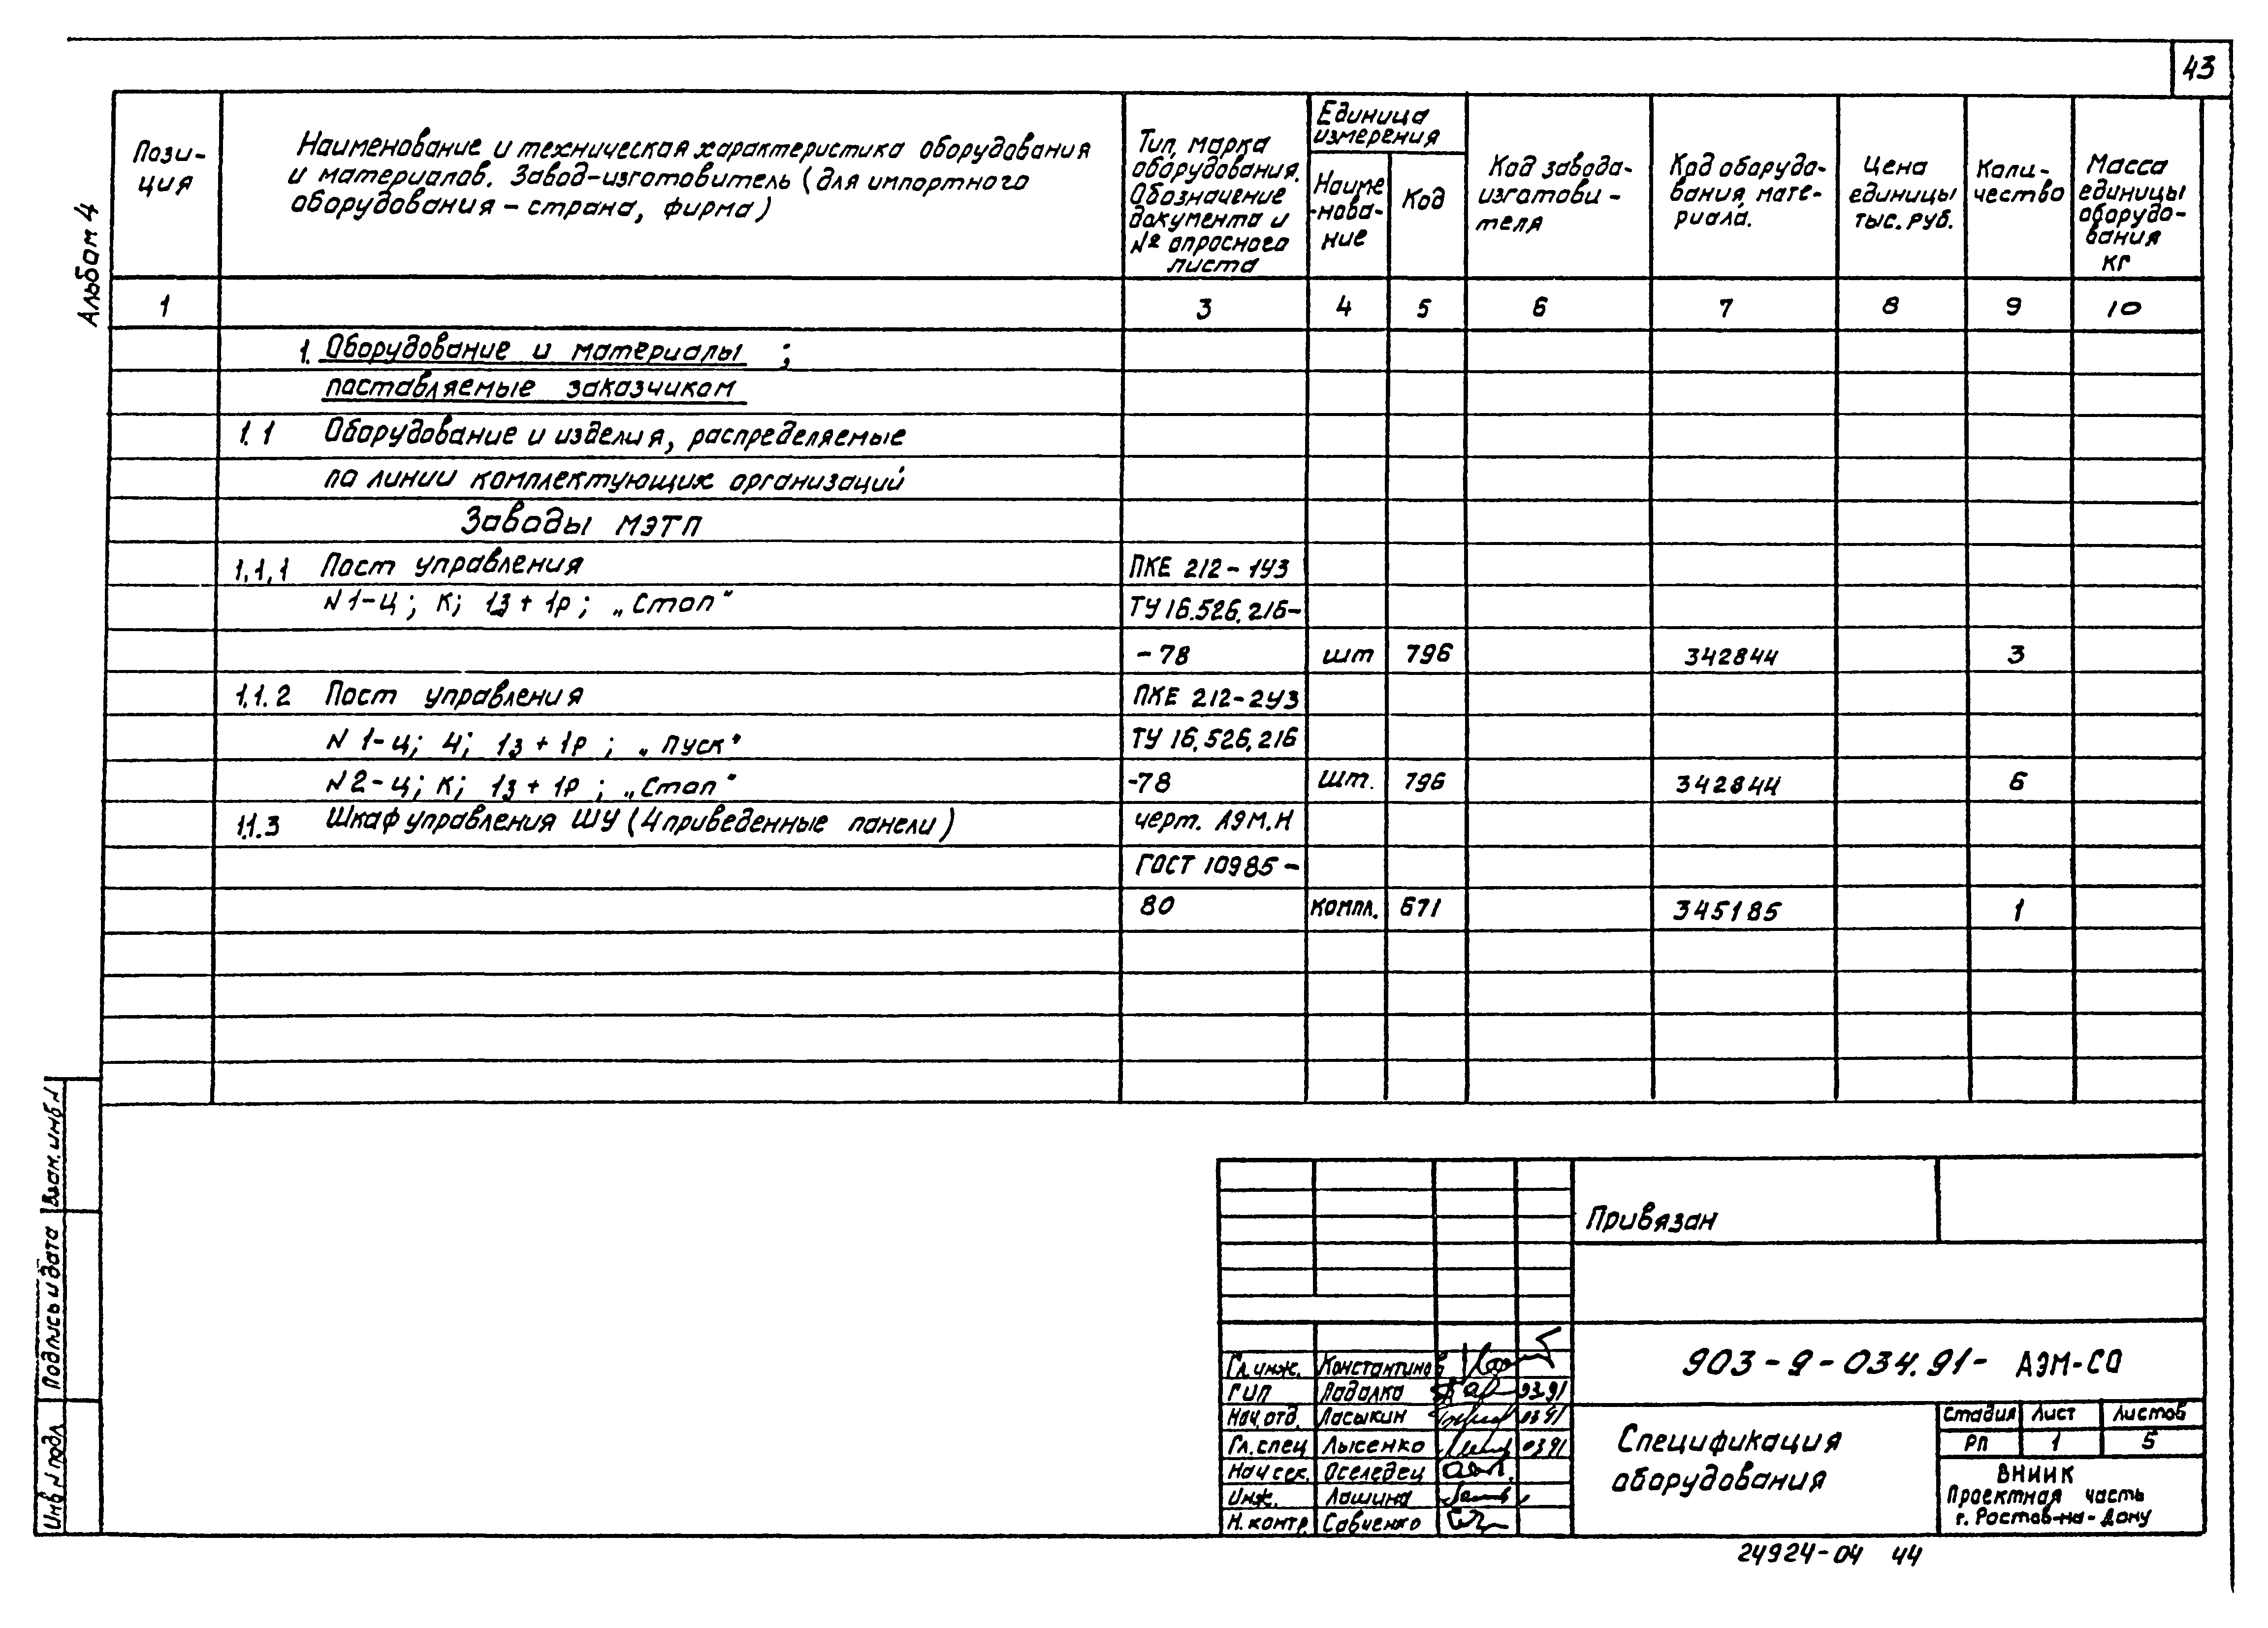 43
Альбом 4
Пози-
ция
Наименование и техническая характеристика оборудования
и материалов. Завод-изготовитель (для импортного
оборудования - страна, фирма)
Тип, марка
оборудования.
Обозначение
документа и
№ опросного
листа
Единица
измерения
Наиме
-нова-
ние
Код
Код завода-
изготови-
теля
Код оборудо-
вания, мате-
риала.
Цена
единицы
тыс. руб.
Коли-
чество
Масса
единицы
оборудо-
вания
кг
1 3 4 5 6 7 8 9 10
1. Оборудование и материалы ;
поставляемые заказчиком
1.1 Оборудование и изделия, распределяемые
по линии комплектующих организаций
Заводы МЭТП
1.1.1 Пост управления ПКЕ 212-1У3
N1-ц; К; 1з+1р; „Стоп" ТУ 16.526.216-
-78 шт 796 342844 3
1.1.2 Пост управления ПКЕ 212-2У3
N 1-ц; Ч; 1з+1р; „Пуск" ТУ 16.526.216
N2-ц; К; 1з+1р; „Стоп" -78 шт. 796 342844 6
1.1.3 Шкаф управления ШУ (4 приведенные панели) черт. АЭМ.Н
ГОСТ 10985-
80 компл. 671 345185 1
Взам. инв N
Подпись и дата
Инв N подл
Привязан
903-9-034.91- АЭМ-СО
Гл. инж. Константинов
ГИП Ладалка 03.91
Нач. отд. Ласыкин 03.91
Гл. спец Лысенко 03.91
Нач сек. Оселедец
Инж. Лашина
Н. контр. Савченко
Спецификация
оборудования
Стадия Лист Листов
РП 1 5
ВНИИК
Проектная часть
г. Ростов-на-Дону
24924-04 44